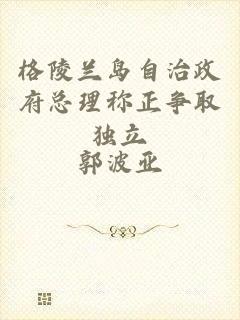 格陵兰岛自治政
府总理称正争取
独立
郭波亚